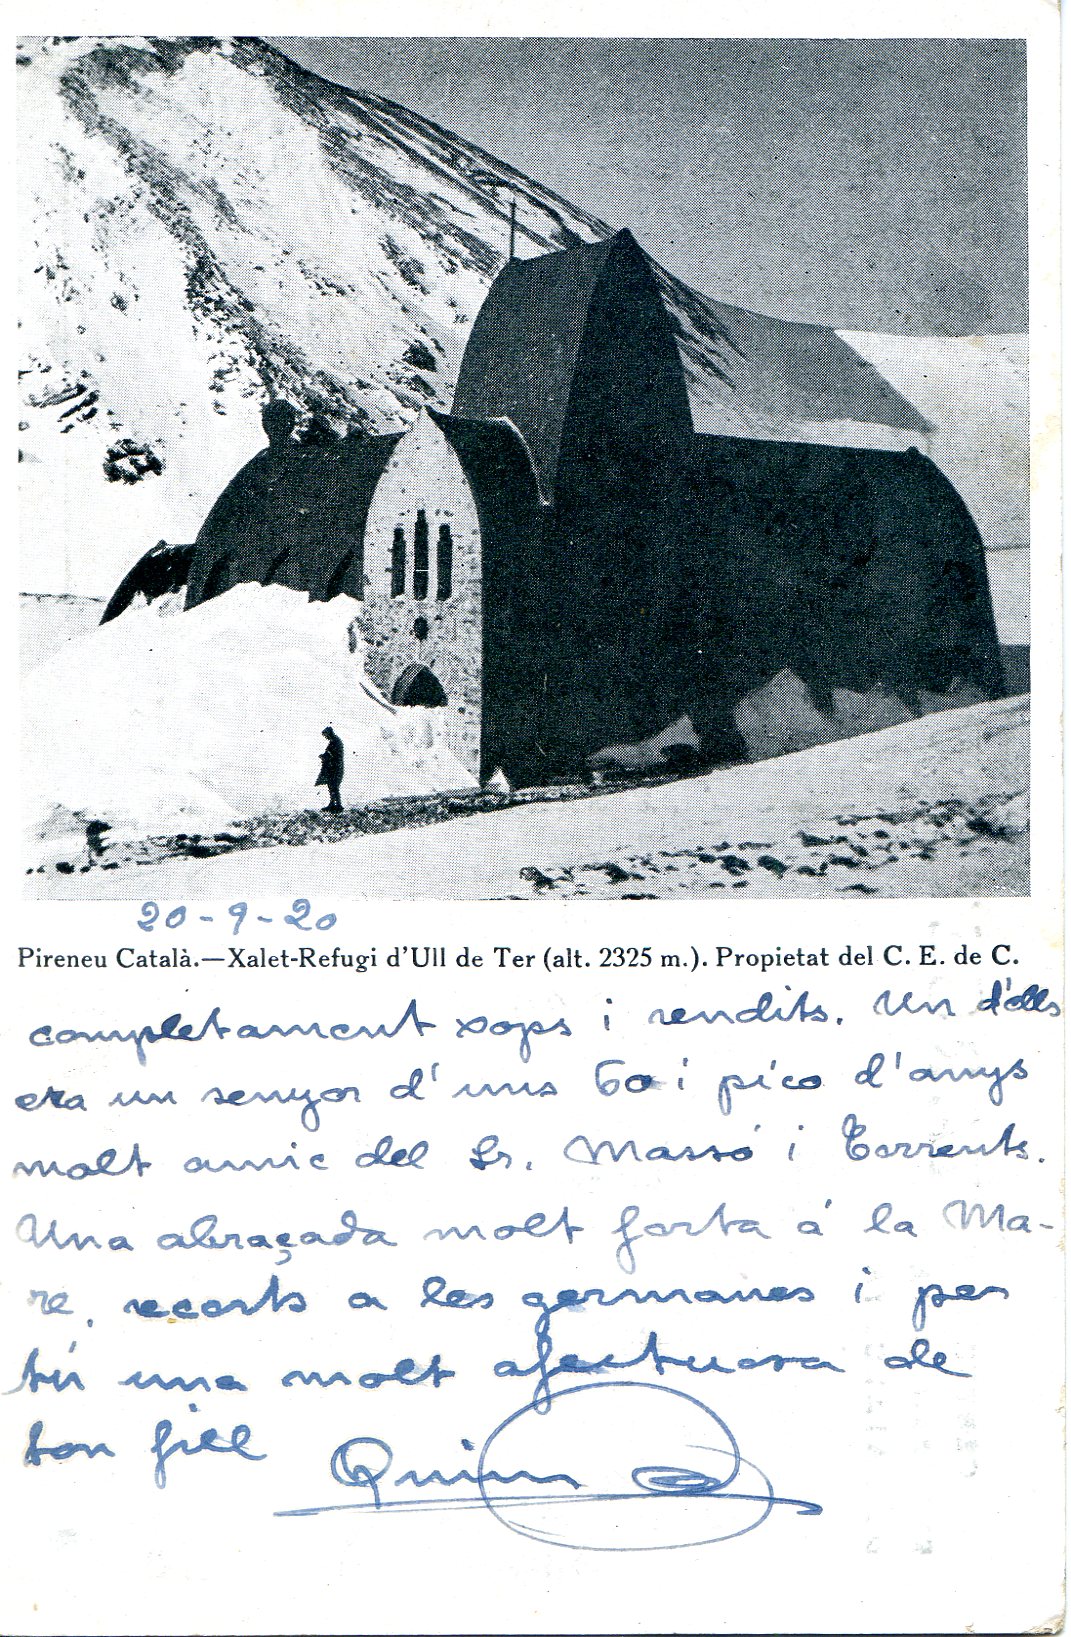 20-9-20
Pireneu Català.—Xalet-Refugi d'Ull de Ter (alt. 2325 m.). Propietat del C. E. de C.
completament xops i rendits. Un d'ells
era un senyor d'uns 60 i pico d'anys
molt amic del Sr. Massó i Torrents.
Una abraçada molt forta á la Ma-
re, recorts a les germanes i per
tú una molt afectuosa de
ton fill Quim